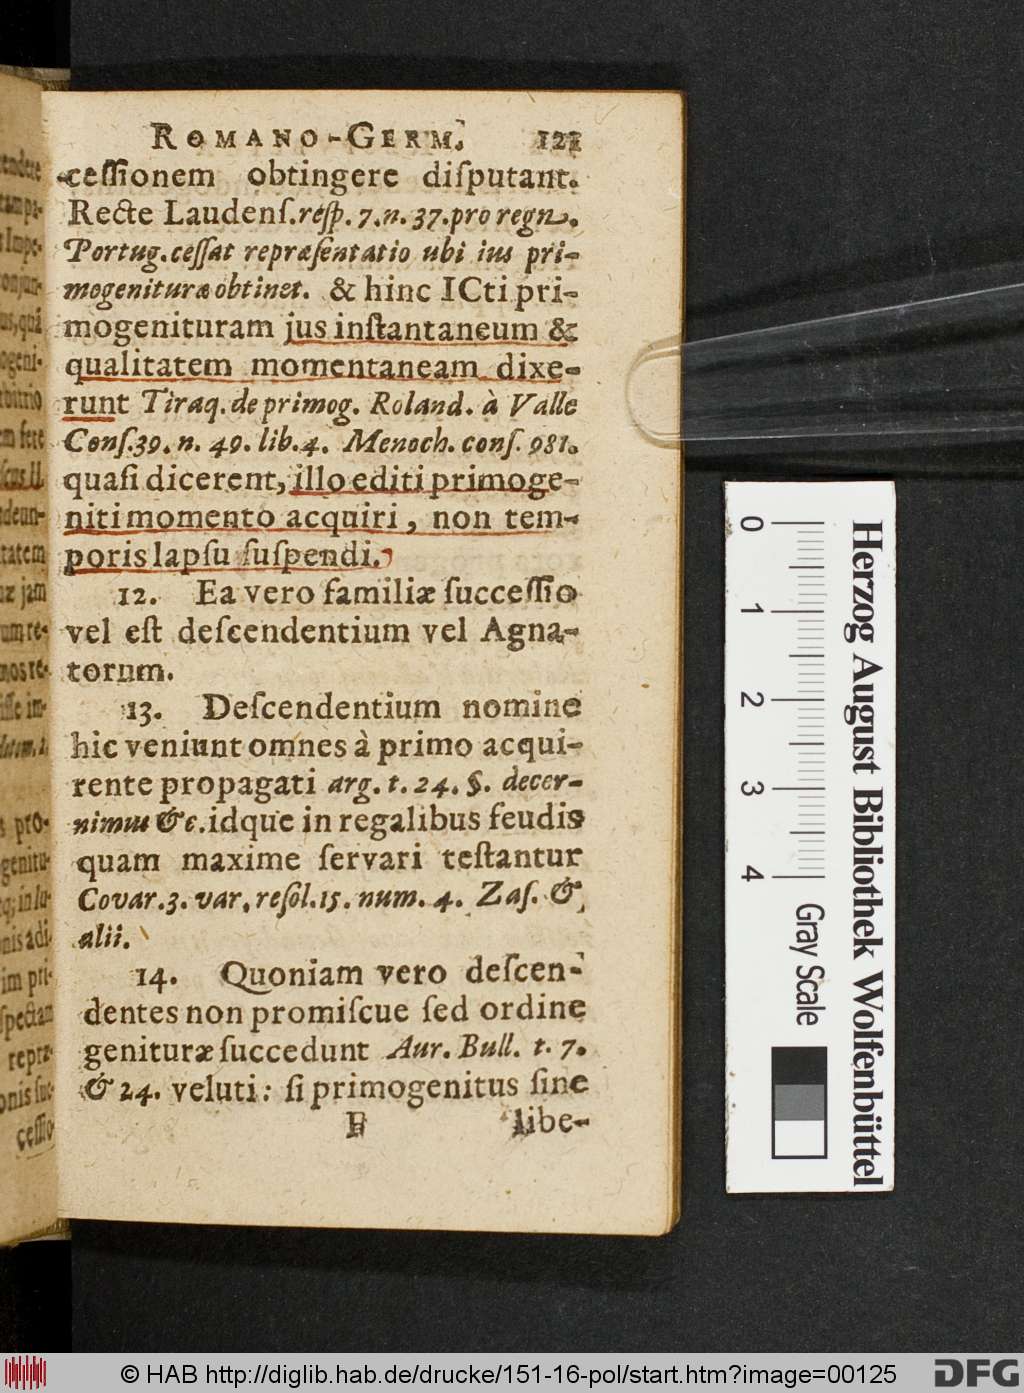 ROMANO-GERM. 121
cessionem obtingere diſputant.
Recte Laudenſ. reſp. 7. n. 37. pro regn.
Portug. ceſſat repræſentatio ubi ius pri-
mogenituræ obtinet. & hinc ICti pri-
mogenituram jus inſtantaneum &
qualitatem momentaneam dixe-
runt Tiraq. de primog. Roland. à Valle
Conſ. 39. n. 49. lib. 4. Menoch. conſ. 981.
quaſi dicerent, illo editi primoge-
niti momento acquiri, non tem-
poris lapſu ſuſpendi.
12. Ea vero familiæ ſucceſſio
vel eſt deſcendentium vel Agna-
torum.
13. Deſcendentium nomine
hic veniunt omnes à primo acqui-
rente propagati arg. t. 24. §. decer-
nimus &c. idque in regalibus feudis
quam maxime ſervari teſtantur
Covar. 3. var. reſol. 15. num. 4. Zaſ. &
alii.
14. Quoniam vero deſcen-
dentes non promiſcue ſed ordine
genituræ ſuccedunt Aur. Bull. t. 7.
& 24. veluti: ſi primogenitus ſine
libe-
0 1 2 3 4
Gray Scale
Herzog August Bibliothek Wolfenbüttel
© HAB http://diglib.hab.de/drucke/151-16-pol/start.htm?image=00125
DFG